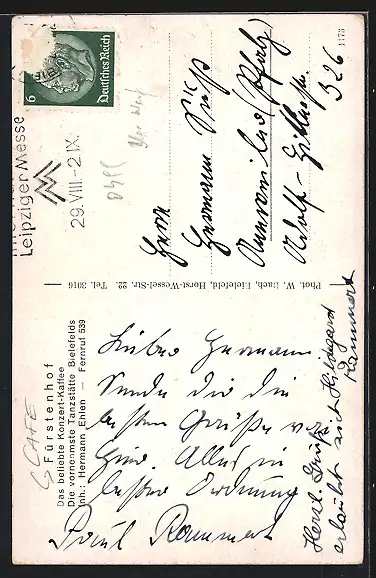 Leipziger Messe
29.VIII.-2.IX.
Deutsches Reich
6
Herrn
Hermann Süß
Annweiler (Pfalz)
Adolf-Hitlerstr. 326
1373
Phot. W. Bach, Bielefeld, Horst-Wessel-Str. 22. Tel. 3016
CAFE
Fürstenhof
Das beliebte Konzert-Kaffee
Die vornehmste Tanzstätte Bielefelds
Inh.: Hermann Ehlen — Fernruf 539
Lieber Hermann
Sende dir die
besten Grüße von
hier. Alles in
bester Ordnung
Paul Rammert
Herzl. Grüße
erlaubt sich Hildegard
Rammert